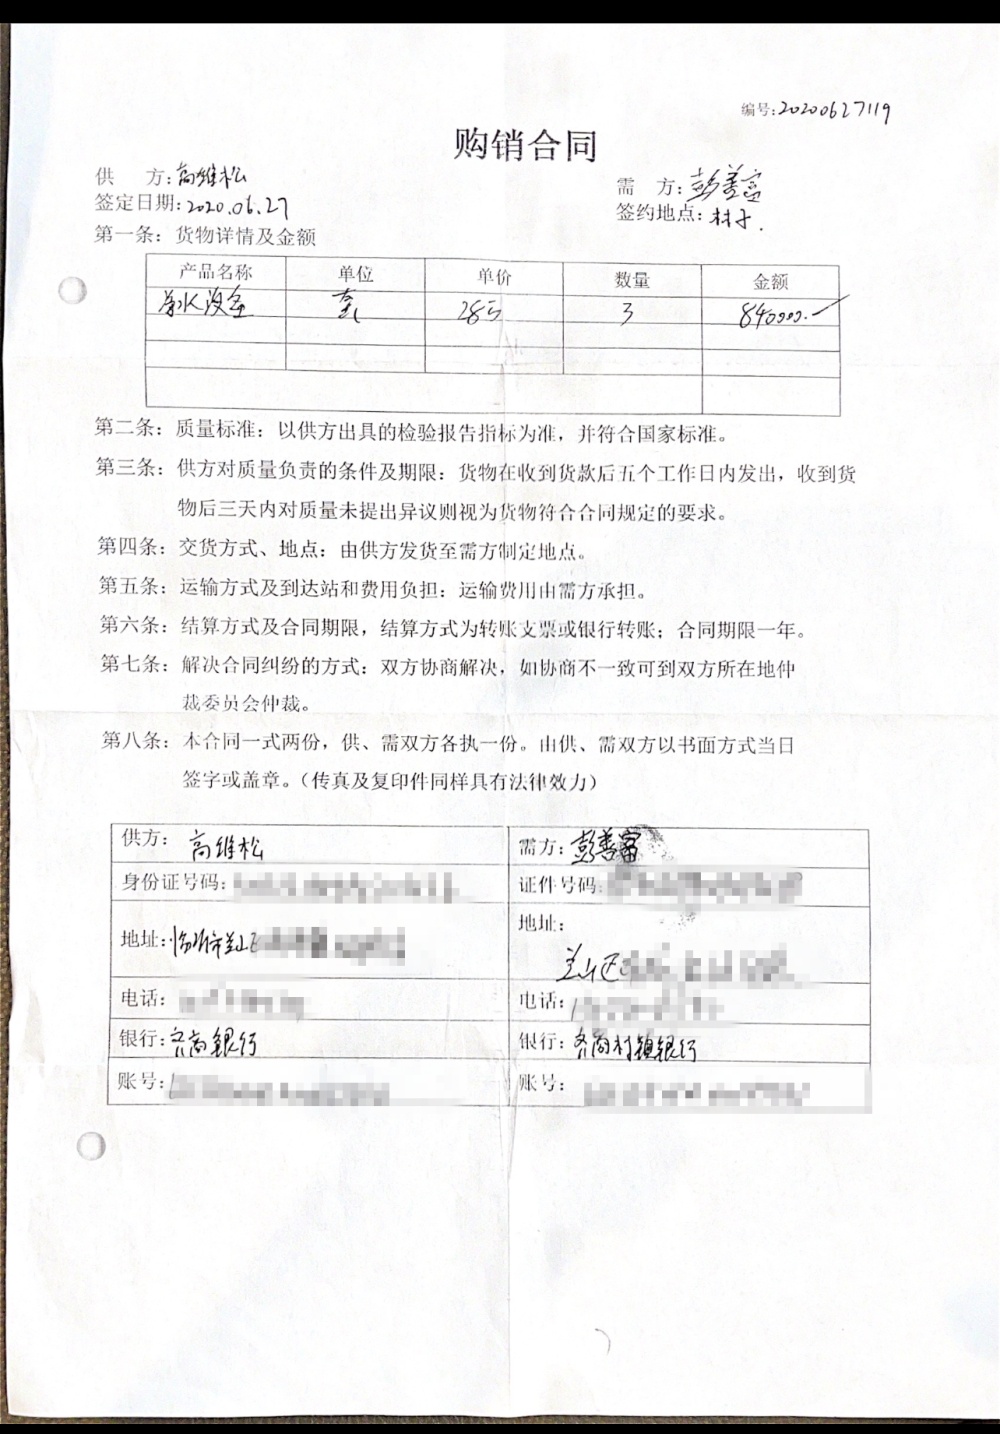 编号:20200627119
购销合同
供 方:高维松
需 方:彭善富
签定日期:2020.06.27
签约地点:村子.
第一条：货物详情及金额
产品名称 单位 单价 数量 金额
净水设金 套 28万 3 840000.-
第二条：质量标准：以供方出具的检验报告指标为准，并符合国家标准。
第三条：供方对质量负责的条件及期限：货物在收到货款后五个工作日内发出，收到货
物后三天内对质量未提出异议则视为货物符合合同规定的要求。
第四条：交货方式、地点：由供方发货至需方制定地点。
第五条：运输方式及到达站和费用负担：运输费用由需方承担。
第六条：结算方式及合同期限，结算方式为转账支票或银行转账；合同期限一年。
第七条：解决合同纠纷的方式：双方协商解决，如协商不一致可到双方所在地仲
裁委员会仲裁。
第八条：本合同一式两份，供、需双方各执一份。由供、需双方以书面方式当日
签字或盖章。（传真及复印件同样具有法律效力）
供方：高维松 需方：彭善富
身份证号码： 证件号码：
地址：临沂市兰山区 地址：
兰山区
电话： 电话：
银行：齐商银行 银行：齐商村镇银行
账号： 账号：